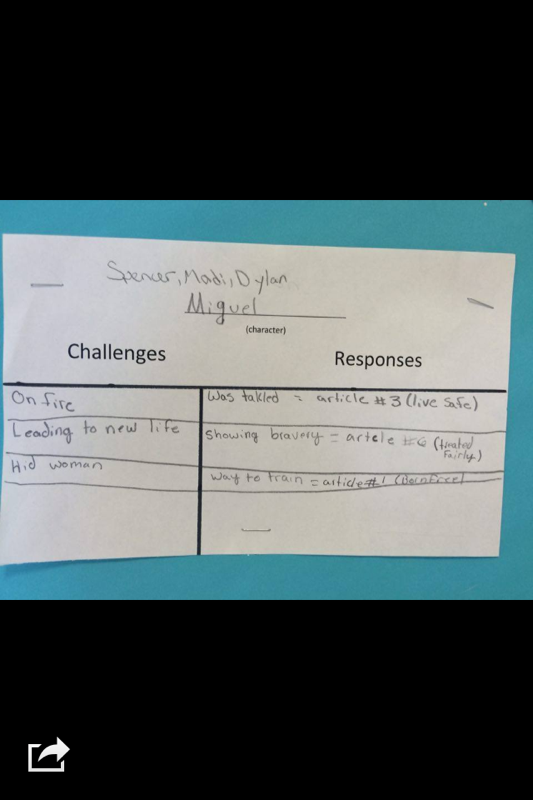 Spencer, Madi, Dylan
Miguel
(character)
Challenges
Responses
On fire
Was takled = article #3 (live safe)
Leading to new life
Showing bravery = artcle #6 (treated Fairly)
Hid woman
way to train = article #1 (Born Free)